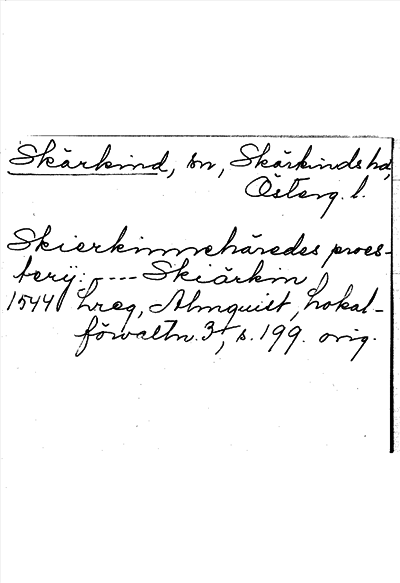 Skärkind, sn, Skärkinds hd,
Österg. l.
Skierkinnehäredes proes-
terij: ---- Skiärkin
1544 Lreg, Almquist, Lokal-
förvaltn. 3, s. 199. orig.